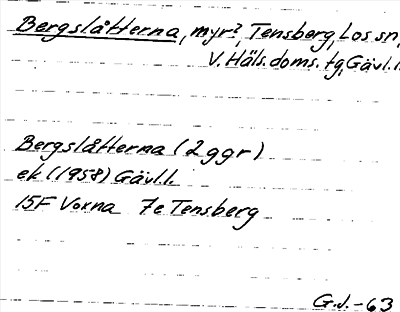 Bergslåtterna, myr?, Tensberg, Los sn,
V. Häls. doms. tg, Gävl. l.
Bergslåtterna (2 ggr)
ek (1958) Gävl. l.
15F Voxna 7e Tensberg
G.J.-63